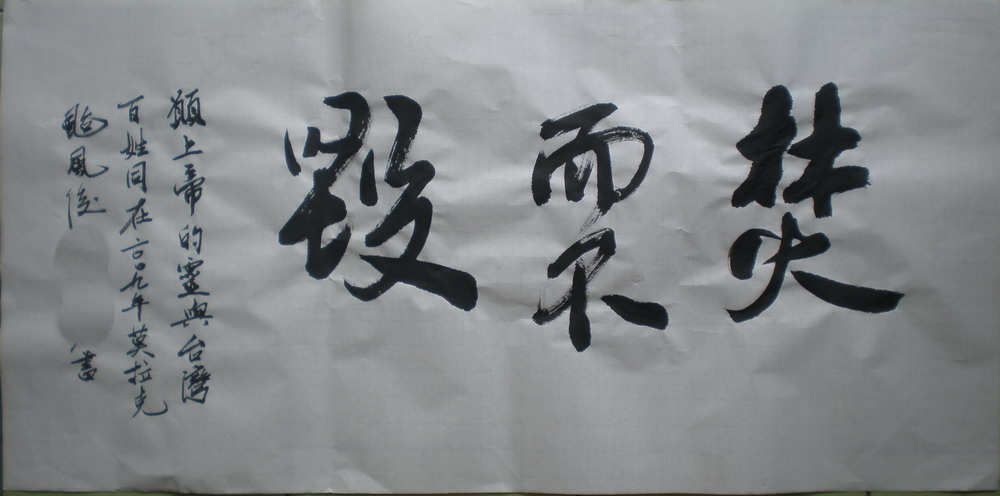 焚而不毀
願上帝的靈與台灣
百姓同在二〇〇九年莫拉克
颱風後 書